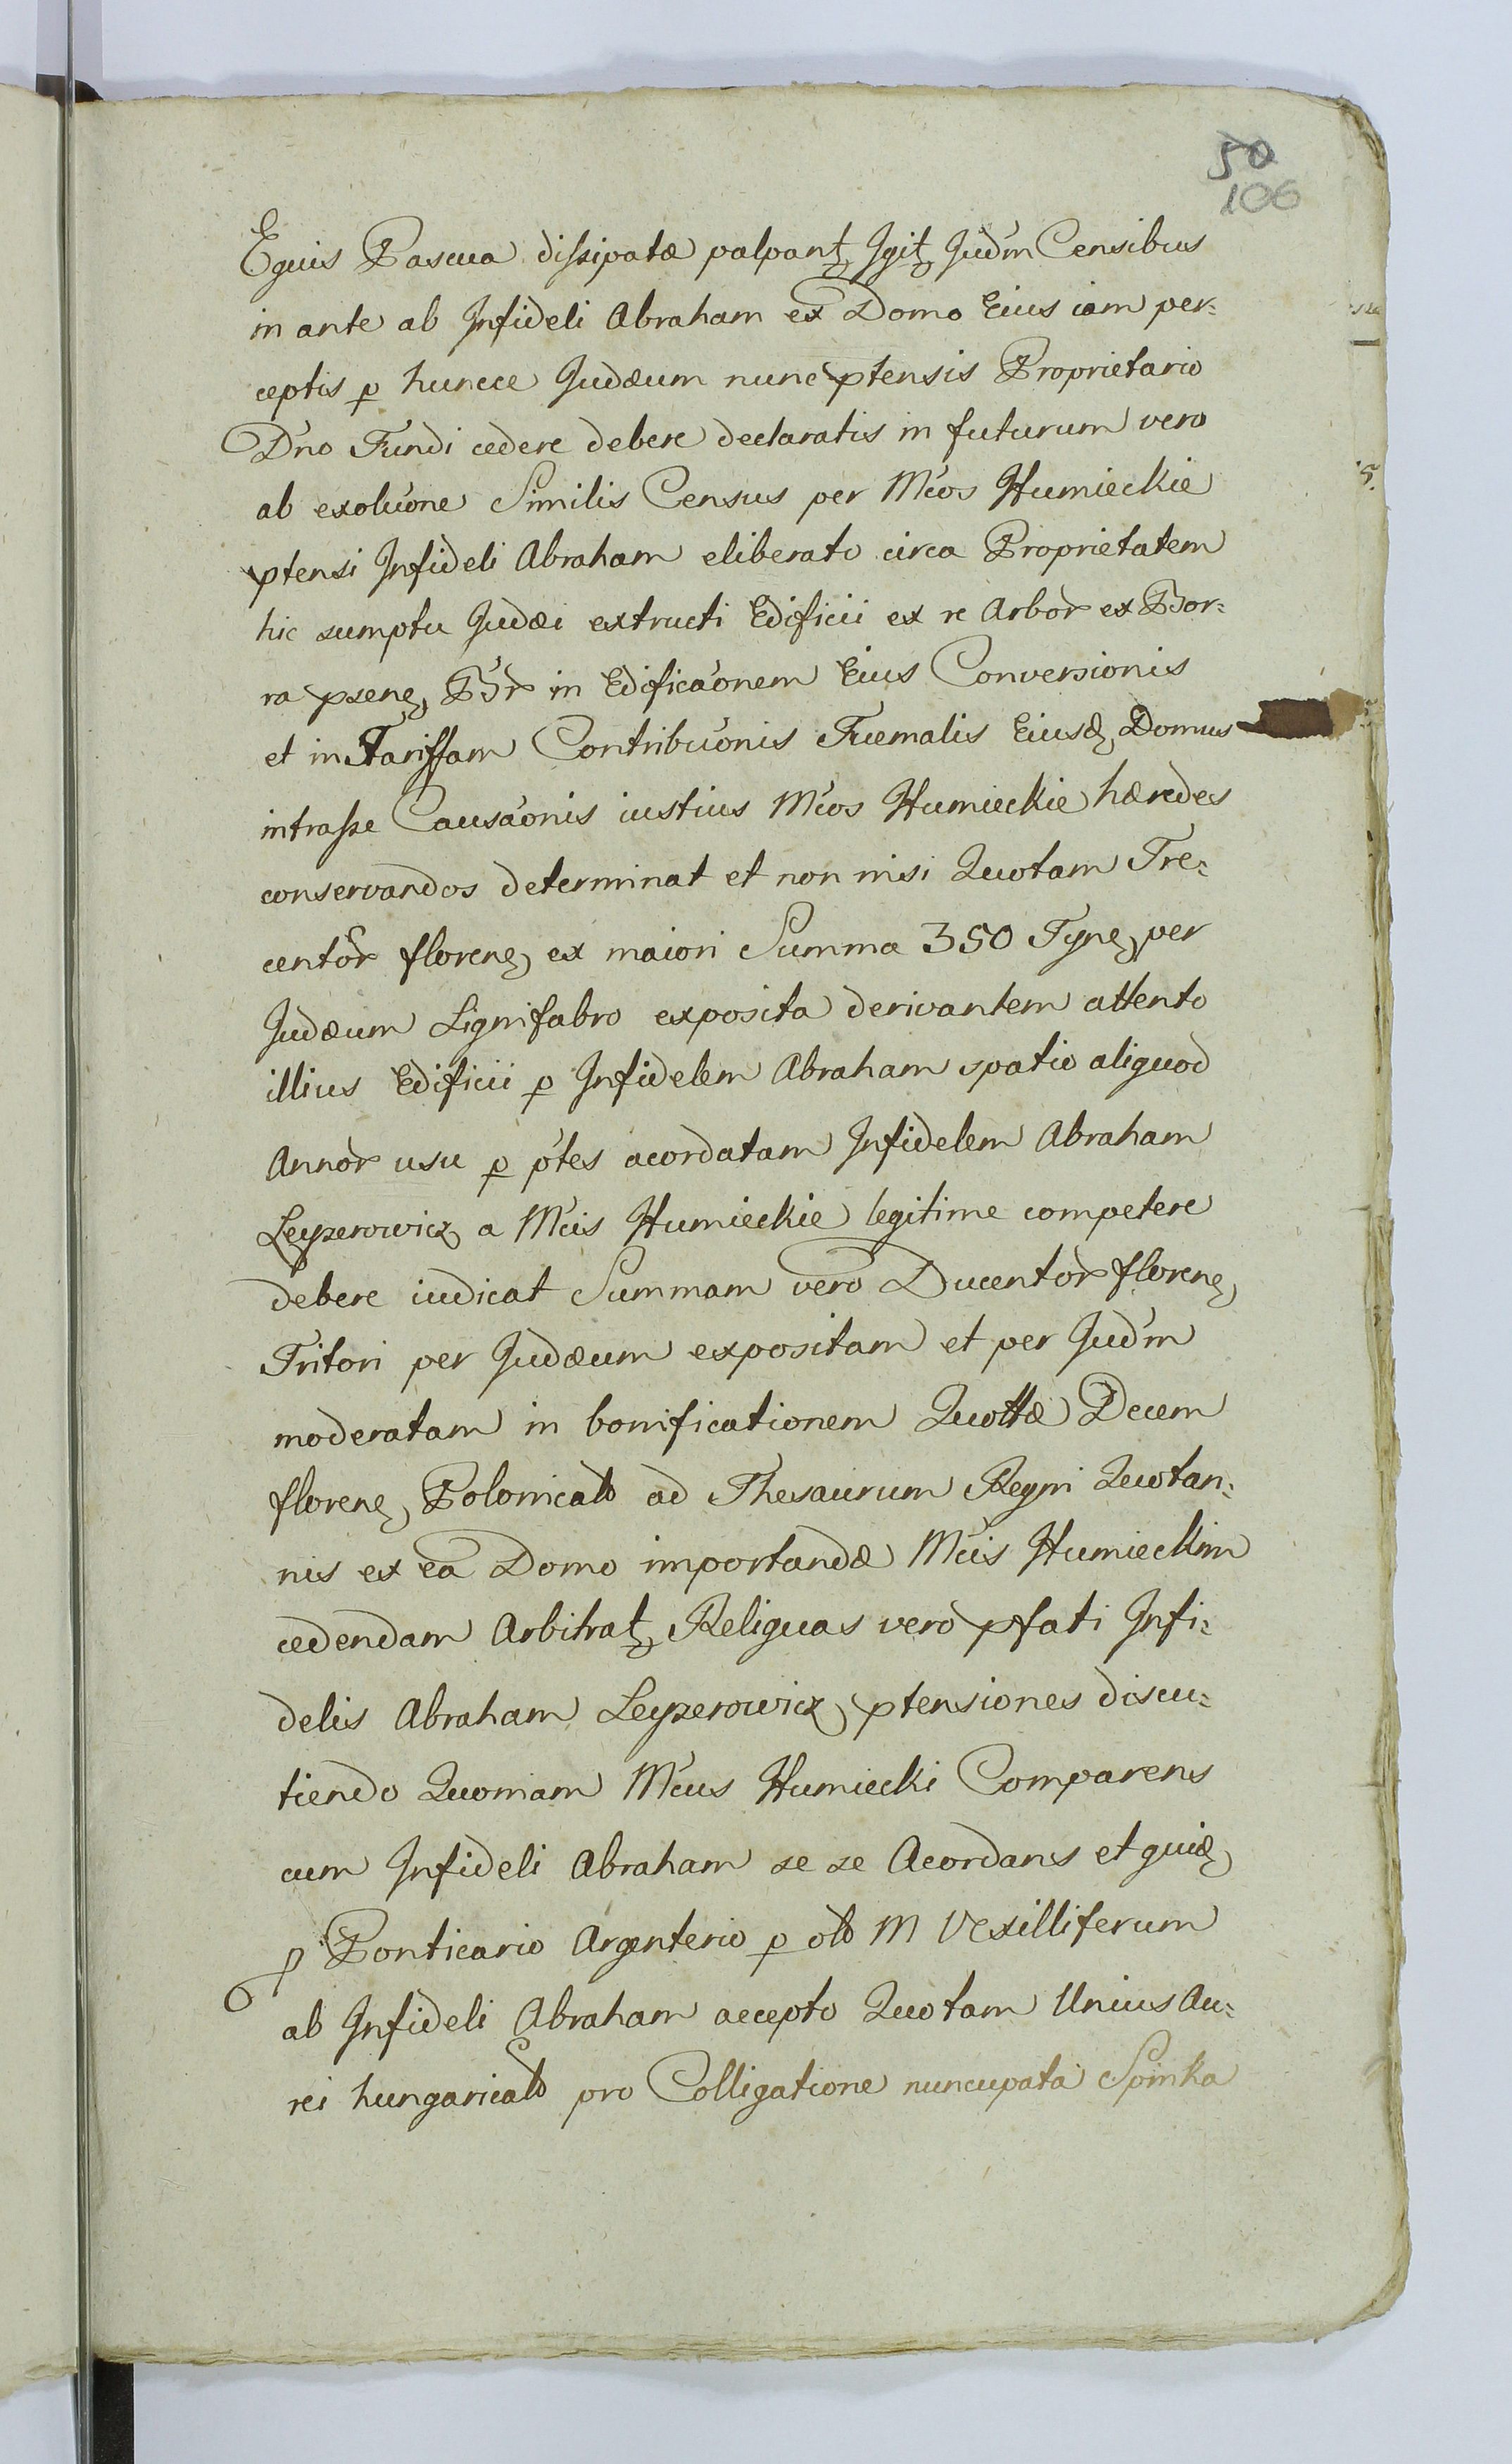 50
106
Equis Pascua dissipatæ palpant, Igit, Jud'm Censibus
in ante ab Infideli Abraham ex Domo Eius iam per=
ceptis p huncce Judæum nunc ptensis Proprietario
D'no Fundi cedere debere declaratis in futurum vero
ab exolu'one Similis Census per M'cos Humieckie
ptensi Infideli Abraham eliberato circa Proprietatem
hic sumptu Judæi extructi Edificii ex re Arbor ex Bor=
ra psene, Br in Edifica'onem Eius Conversionis
et in Tariffam Contribu'onis Fuemalis Eiusd, Domus
intrasse Causa'onis iustius M'cos Humieckie hæredes
conservandos determinat et non nisi Quotam Tre=
centor florene, ex maiori Summa 350 Tyne, per
Judæum Lignifabro exposita derivantem attento
illius Edificii p Infidelem Abraham spatio aliquod
Annor usu p p'tes acordatam Infidelem Abraham
Leyzerowicz a M'cis Humieckie legitime competere
debere iudicat Summam vero Ducentor florene,
Tritori per Judæum expositam et per Jud'm
moderatam in bonificationem Quottæ Decem
florene, Polonicalb ad Thesaurum Regni Quotan=
nis ex ea Domo importandæ M'cis Humieckim
cedendam Arbitrat, Reliquas vero pfati Infi=
delis Abraham Leyzerowicz ptensiones discu=
tiendo Quoniam M'cus Humiecki Comparens
cum Infideli Abraham se se Acordans et quid,
p Ponticario Argenterio p olb M Vexilliferum
ab Infideli Abraham accepto Quotam Unius Au=
rei hungaricalb pro Colligatione nuncupata Spinka